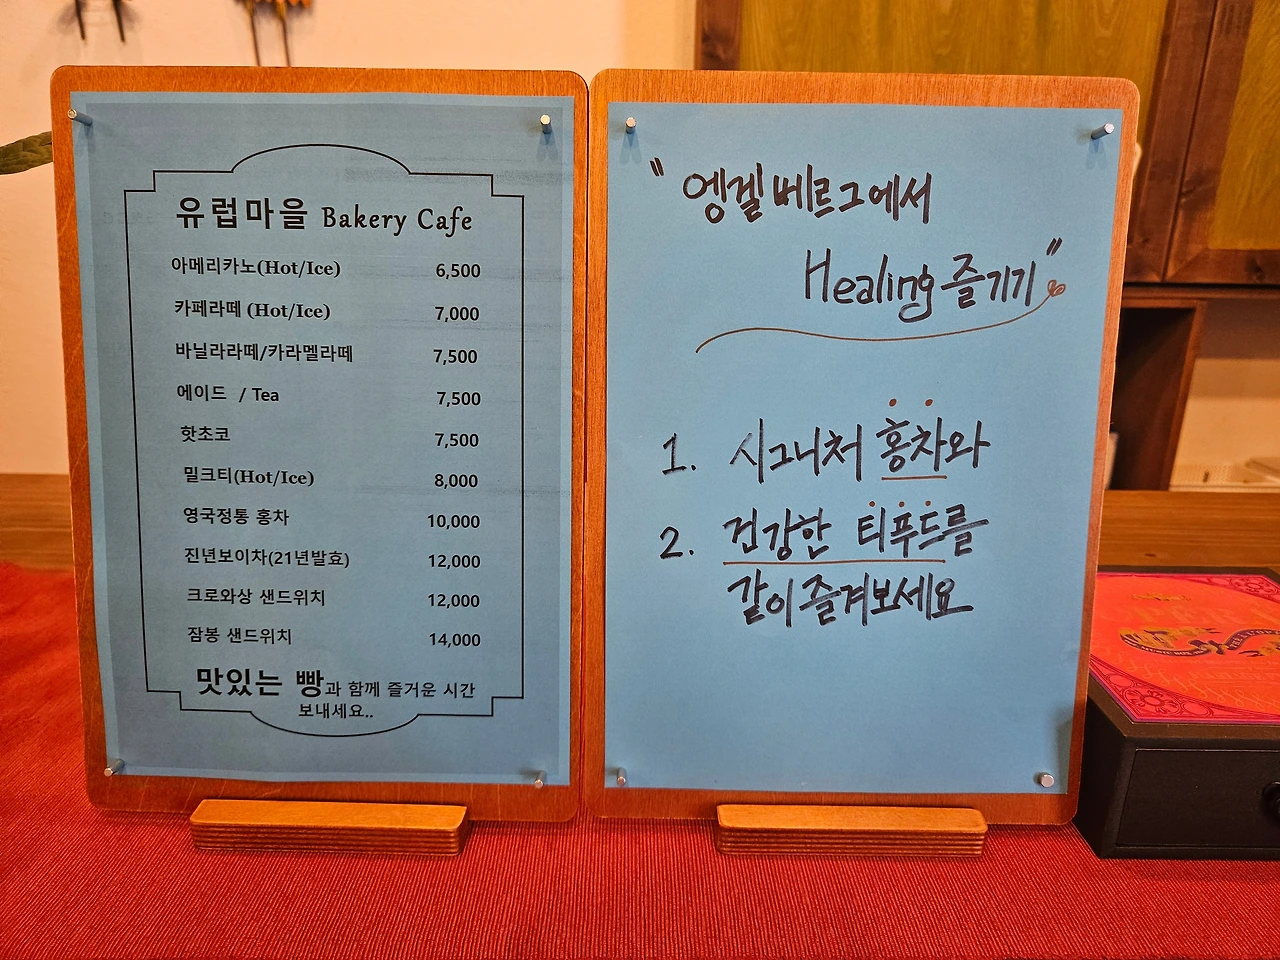 유럽마을 Bakery Cafe
아메리카노(Hot/Ice) 6,500
카페라떼 (Hot/Ice) 7,000
바닐라라떼/카라멜라떼 7,500
에이드 / Tea 7,500
핫초코 7,500
밀크티(Hot/Ice) 8,000
영국정통 홍차 10,000
진년보이차(21년발효) 12,000
크로와상 샌드위치 12,000
잠봉 샌드위치 14,000
맛있는 빵과 함께 즐거운 시간
보내세요..
"엥겔베르그에서
Healing 즐기기"
1. 시그니처 홍차와
2. 건강한 티푸드를
같이 즐겨보세요